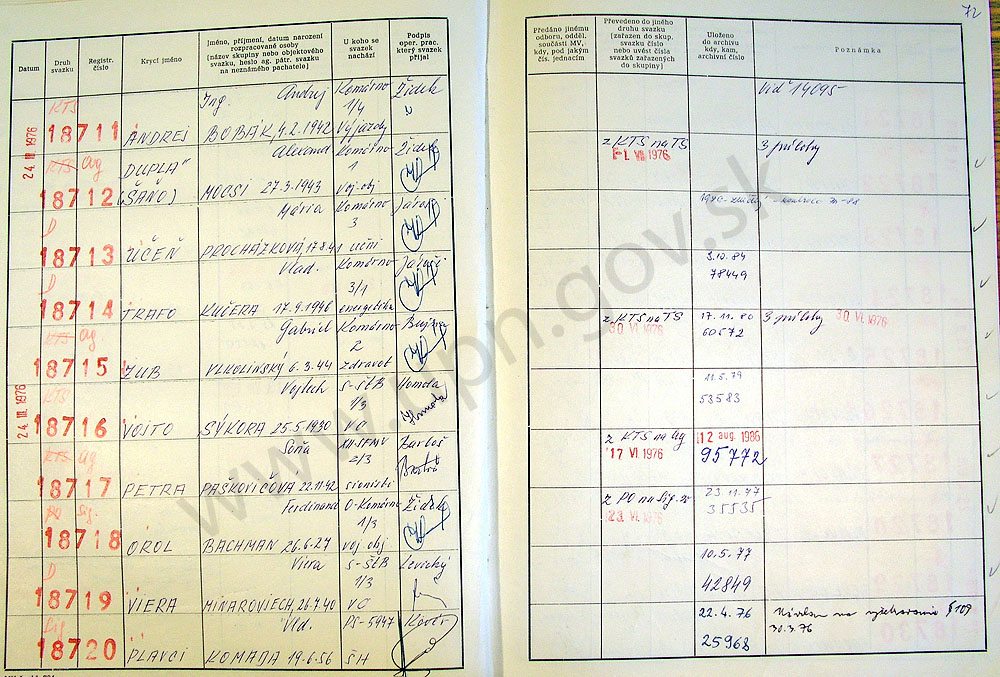 72
Datum
Druh svazku
Registr. číslo
Krycí jméno
Jméno, příjmení, datum narození rozpracované osoby (název skupiny nebo objektového svazku, heslo ag. pátr. svazku na neznámého pachatele)
U koho se svazek nachází
Podpis oper. prac. který svazek přijal
Předáno jinému odboru, odděl. součásti MV, kdy, pod jakým čís. jednacím
Převedeno do jiného druhu svazku [zařazen do skup. svazku číslo nebo uvést čísla svazků zařazených do skupiny]
Uloženo do archivu kdy, kam, archivní číslo
Poznámka
24 III 1976
KTS
18711
ANDREJ
Ing. Andrej
BOBÁK, 4.2.1942
Komárno
1/4
Výjazdy
Židek
Viď 14095
KTS Ag
18712
DUPLA"
(ŠAŇO)
Alexand
MOCSI 27.3.1943
Komárno
1
Voj. obj.
Židek
z KTS na TS
-1. VII 1976
3 prílohy
D
18713
ÚČEŇ
Mária
PROCHÁZKOVÁ, 17.8.41
Komárno
3
učni
D
18714
TRAFO
Vlad.
KUČERA 17.9.1946
Komárno
3/1
energetika
3.10.84
78449
KTS Ag.
18715
ZUB
Gabriel
VLKOLINSKÝ 6.3.44
Komárno
2
zdravot
z KTS na TS
30 VI. 1976
17.11.80
60572
3 prílohy
30 VI. 1976
24 III 1976
KTS
18716
VOJTO
Vojtech
SÝKORA 25.5.1930
S-ŠtB
1/3
VC
Homola
11.5.79
53583
KTS Ag
18717
PETRA
Soňa
PAŠKOVIČOVÁ 22.11.42
XII-SFMV
2/3
sionisti
Bartoš
z KTS na Ag
17 VI 1976
12 aug. 1986
95772
PO Sig.
18718
OROL
Ferdinand
BACHMAN 26.6.27
O-Komárno
1/3
voj. obj
Židek
z PO na Sig.
23. VI. 1976
23.11.77
35535
D
18719
VIERA
Viera
MINAROVIECH, 26.7.40
S-ŠtB
1/3
VC
Levický
10.5.77
42849
Sig
18720
PLAVCI
Vld.
KOMADA 19.6.56
PS-5947
ŠH
Kováč
22.4.76
25968
30.3.76
www.upn.gov.sk